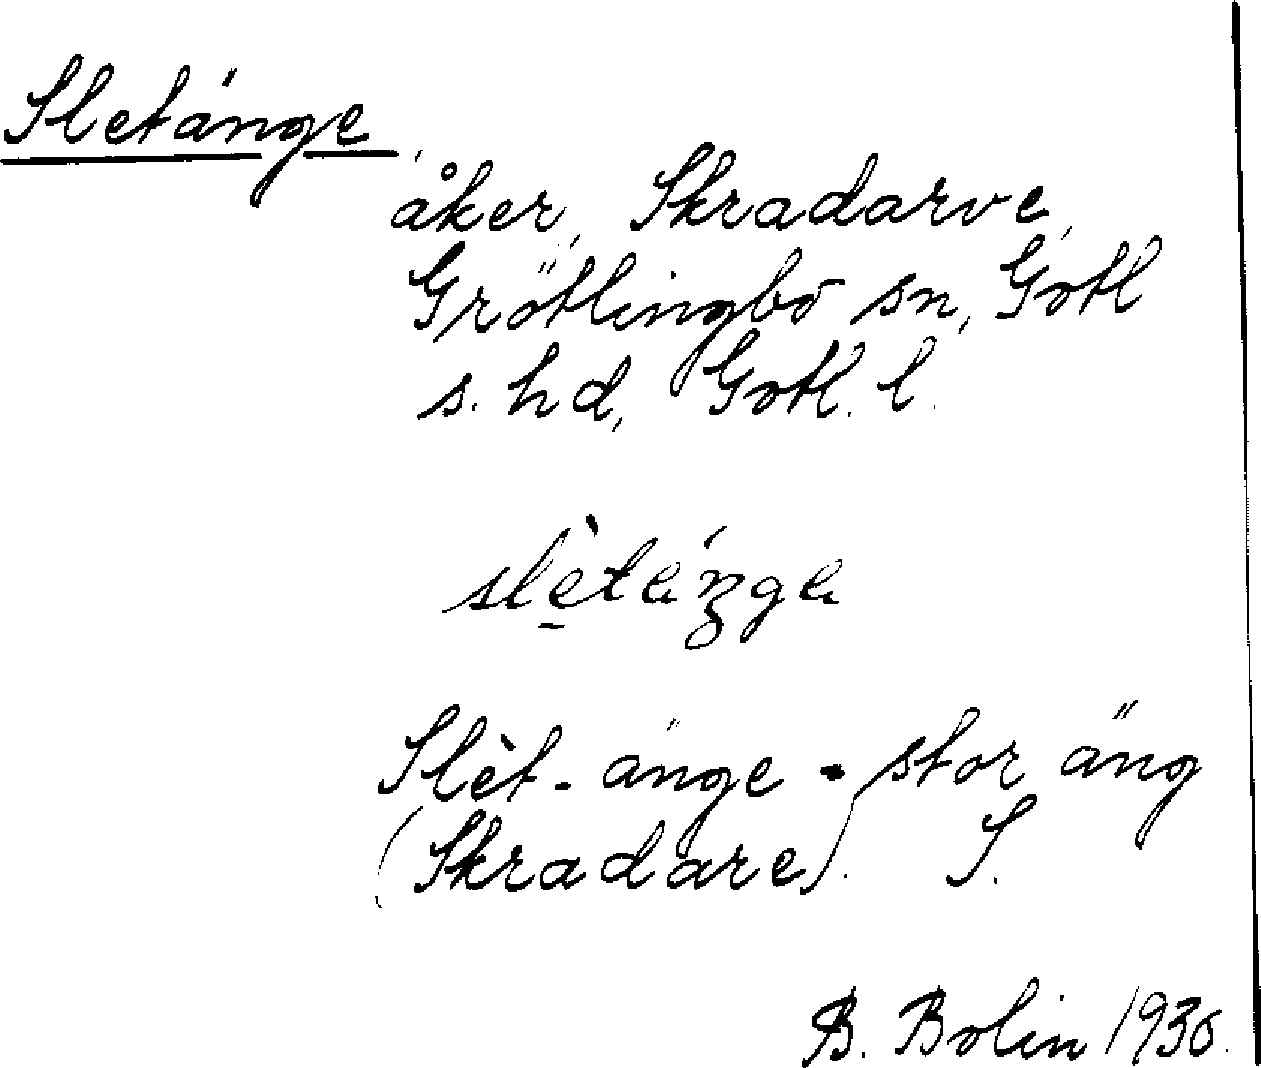 Sletänge,
åker, Skradarve,
Grötlingbo sn, Gotl
s. hd, Gotl. l.
Slèt-änge = stor äng
(Skradare). S.
B. Bolin 1930.